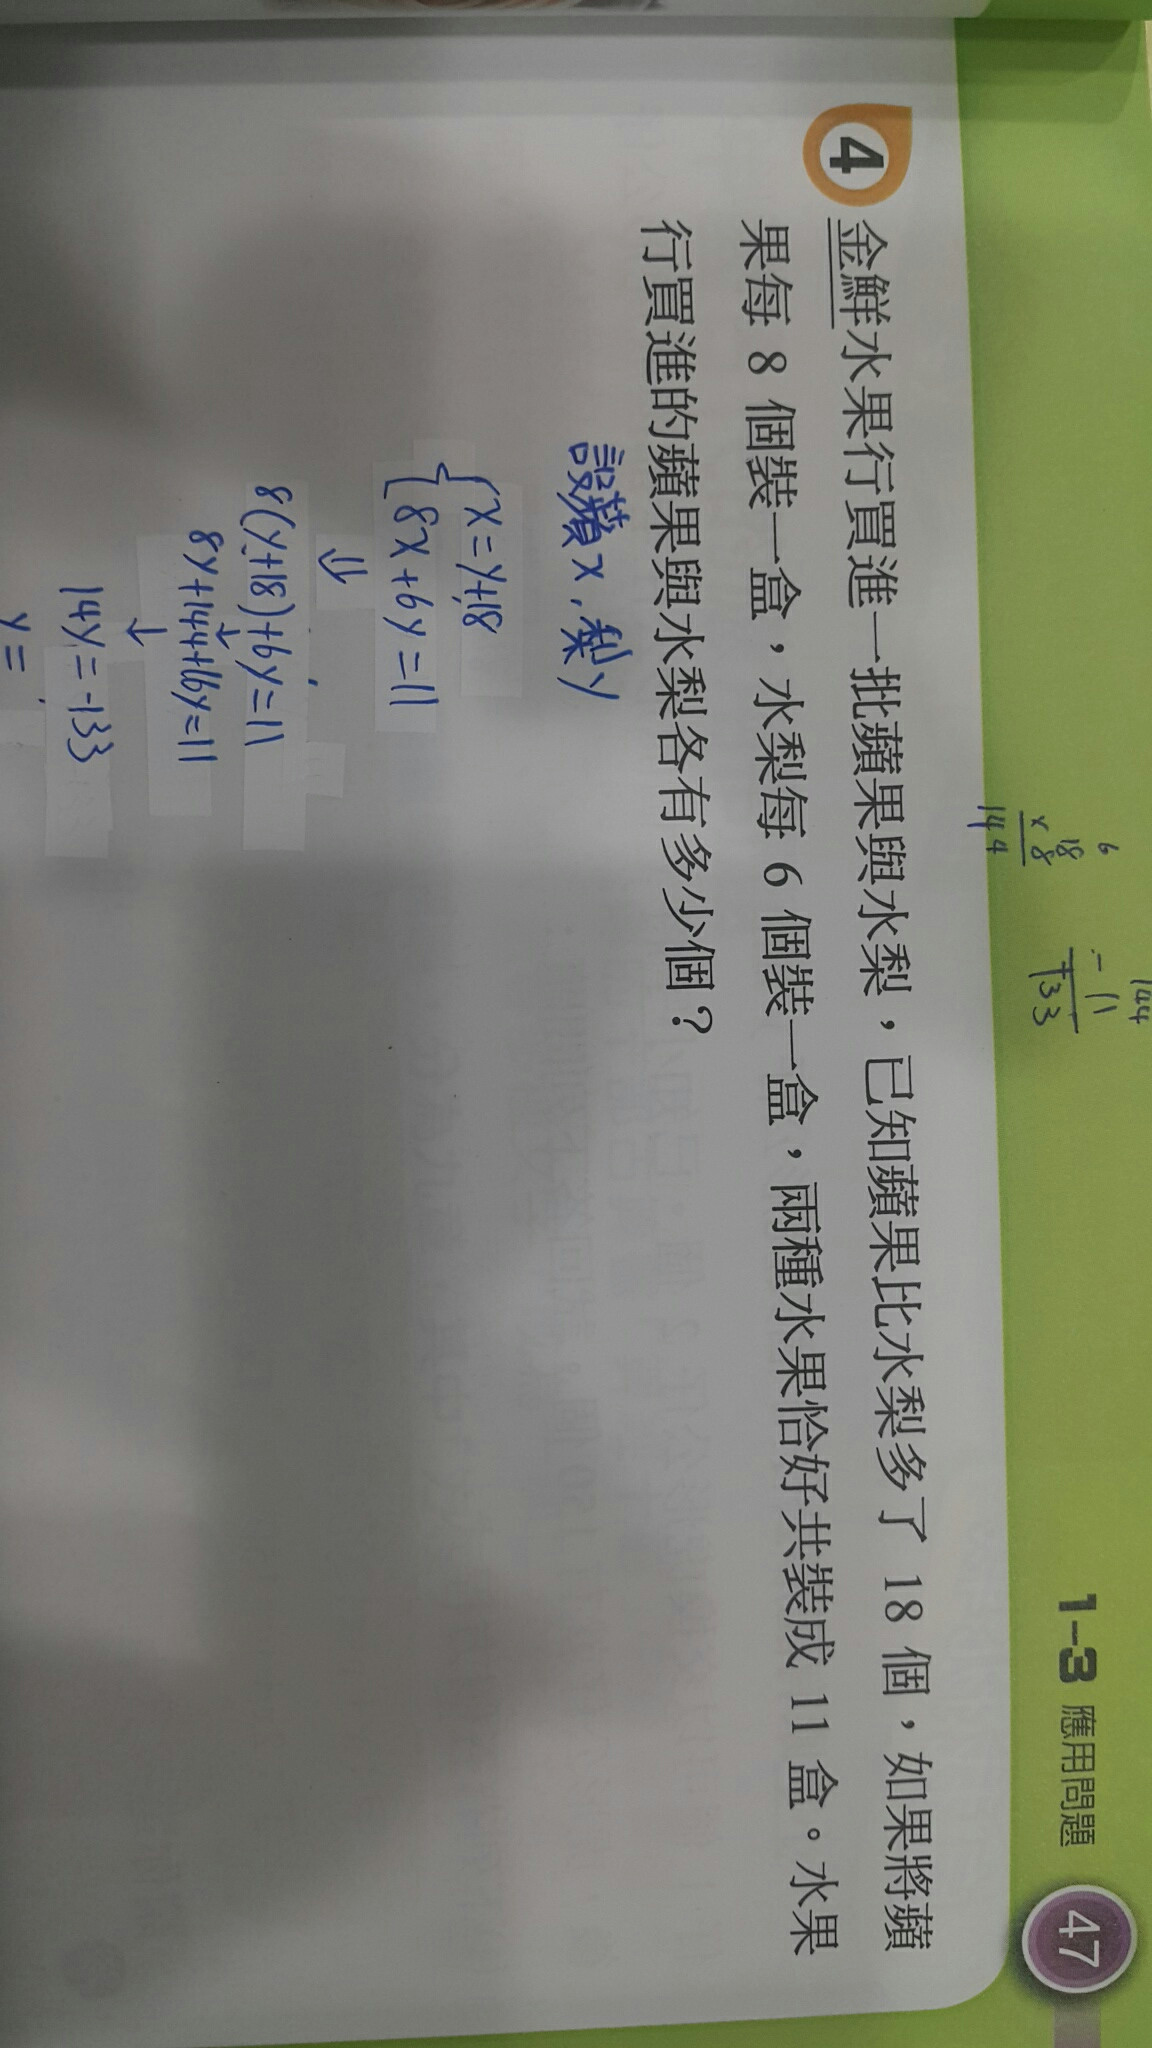 1-3 應用問題 47
6
18
× 8
144
144
- 11
133
4 金鮮水果行買進一批蘋果與水梨，已知蘋果比水梨多了 18 個，如果將蘋
果每 8 個裝一盒，水梨每 6 個裝一盒，兩種水果恰好共裝成 11 盒。水果
行買進的蘋果與水梨各有多少個？
設蘋 x , 梨 y
{ x = y+18
8x + 6y = 11
⇓
8(y+18)+6y=11
↓
8y+144+6y=11
↓
14y = -133
y =